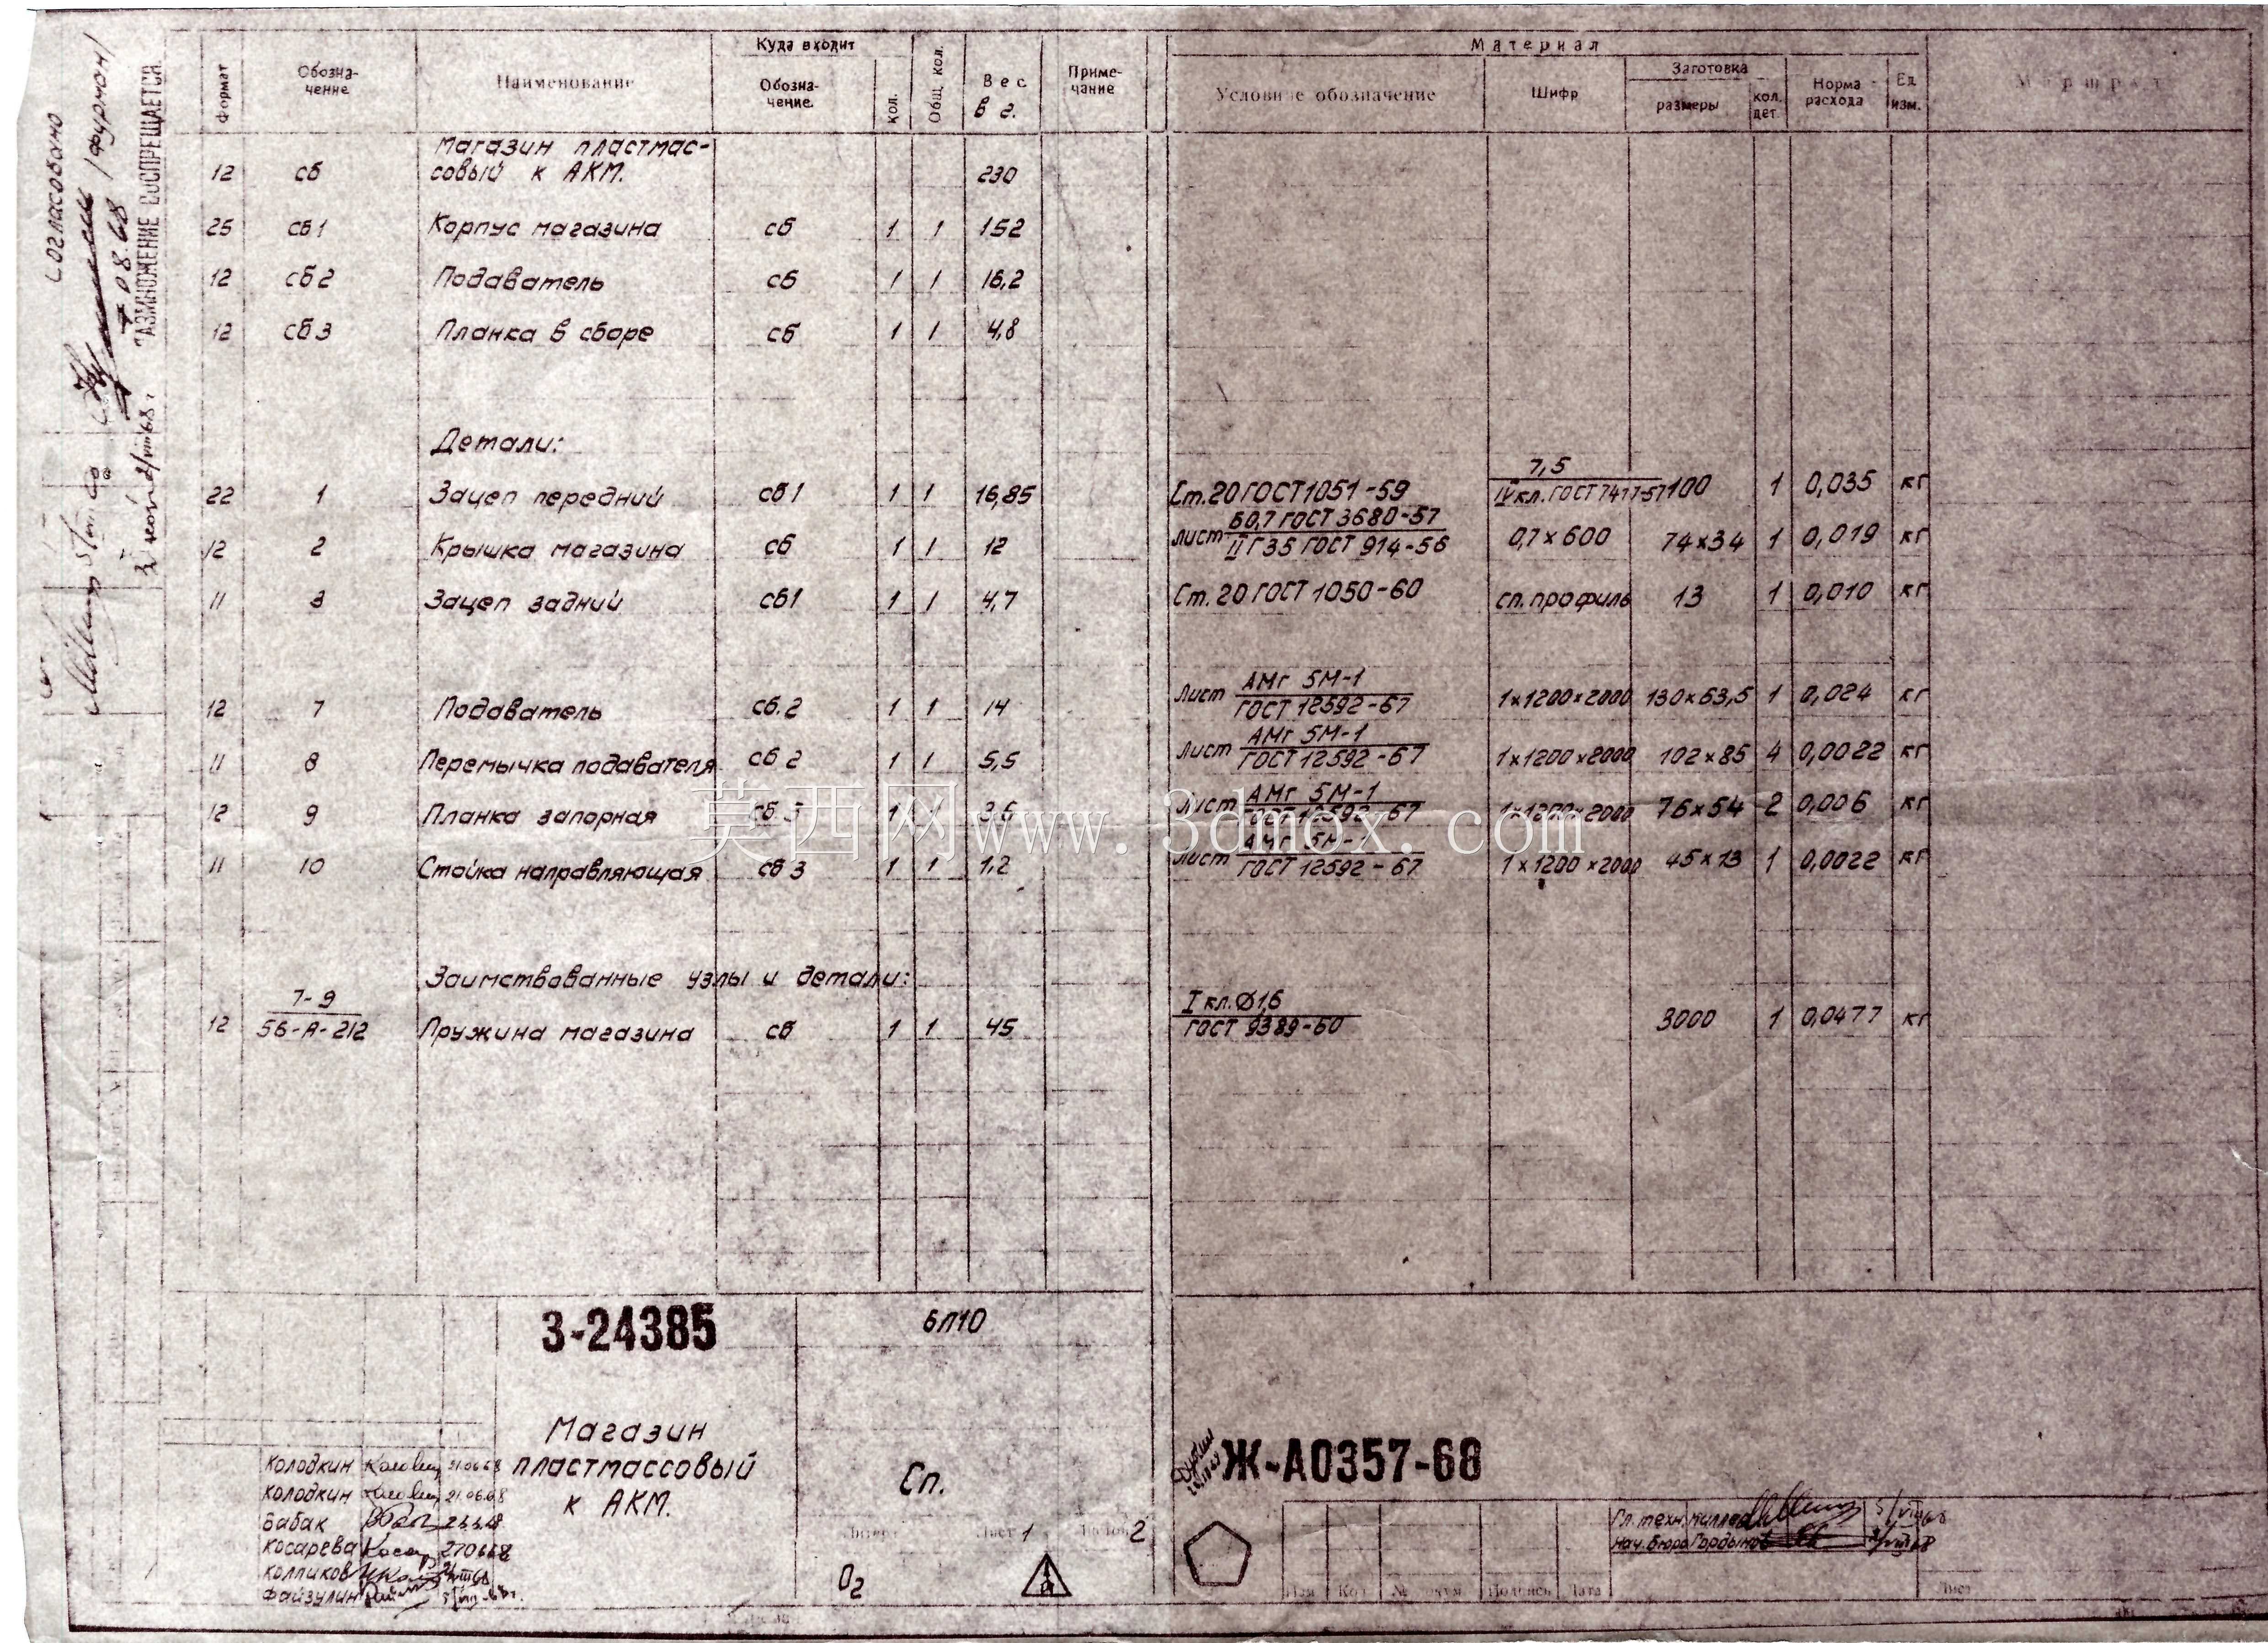 Формат
Обозна-
чение
Наименование
Куда входит
Обозна-
чение
кол.
Общ. кол.
Вес
в г.
Приме-
чание
Материал
Условное обозначение
Шифр
Заготовка
размеры
кол. дет.
Норма
расхода
Ед
изм.
Маршрут
Магазин пластмас-
12 сб совый к АКМ. 230
25 сб1 Корпус магазина сб 1 1 152
12 сб2 Подаватель сб 1 1 16,2
12 сб3 Планка в сборе сб 1 1 4,8
Детали:
22 1 Зацеп передний сб1 1 1 16,85 Ст.20 ГОСТ 1051-59 7,5 IV кл. ГОСТ 7417-57 100 1 0,035 кг
12 2 Крышка магазина сб 1 1 12 лист Б0,7 ГОСТ 3680-57 II Г35 ГОСТ 914-56 0,7×600 74×34 1 0,019 кг
11 3 Зацеп задний сб1 1 1 4,7 Ст.20 ГОСТ 1050-60 сп.профиль 13 1 0,010 кг
12 7 Подаватель сб.2 1 1 14 Лист АМг 5М-1 ГОСТ 12592-67 1×1200×2000 130×63,5 1 0,024 кг
11 8 Перемычка подавателя сб 2 1 1 5,5 Лист АМг 5М-1 ГОСТ 12592-67 1×1200×2000 102×85 4 0,0022 кг
12 9 Планка запорная сб 3 1 1 3,6 Лист АМг 5М-1 ГОСТ 12592-67 1×1200×2000 76×54 2 0,006 кг
莫西网www.3dmox.com
11 10 Стойка направляющая сб 3 1 1 1,2 Лист АМг 5М-1 ГОСТ 12592-67 1×1200×2000 45×13 1 0,0022 кг
Заимствованные узлы и детали:
12 7-9 56-А-212 Пружина магазина сб 1 1 45 I кл. Ø1,6 ГОСТ 9389-60 3000 1 0,0477 кг
Согласовано
/Фурман/
08.68
РАЗМНОЖЕНИЕ ВОСПРЕЩАЕТСЯ
3-24385
6Л10
Магазин
пластмассовый
к АКМ.
Сп.
Лист 1
2
О2
Колодкин 21.06.68
Колодкин 21.06.68
Бабак
Косарева 270668
Колпиков
Файзулин
Ж-А0357-68
Гл. техн.
Нач. бюро Гордынов
Изм Кол № докум. Подпись Дата
Лист